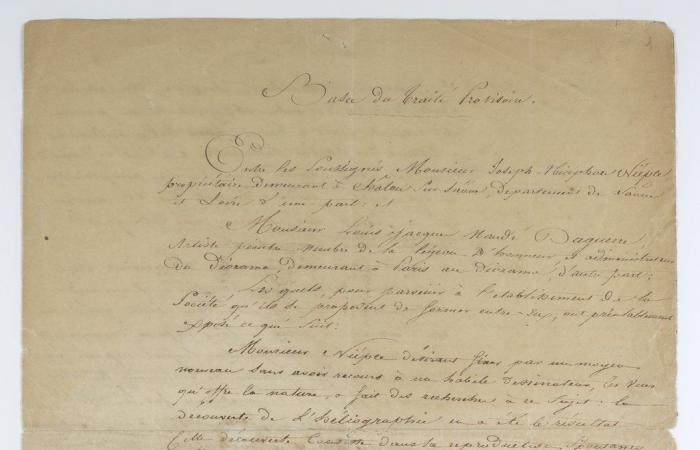 Bases du Traité Provisoire.
Entre les Soussignés Monsieur Joseph Nicéphore Niépce
propriétaire demeurant à Châlon Sur Saône, département de Saône
et Loire d'une part: et
Monsieur Louis Jacques Mandé Daguerre
Artiste peintre membre de la légion d'honneur, & administrateur
du Diorama, demeurant à Paris au diorama, d'autre part;
Lesquels, pour parvenir à l'établissement de la
Société qu'ils se proposent de former entre-eux, ont préalablement
exposé ce qui Suit:
Monsieur Niépce désirant fixer par un moyen
nouveau Sans avoir recours à un habile dessinateur, les vues
qu'offre la nature, a fait des recherches à ce Sujet: la
découverte de l'héliographie en a été le résultat.
Cette découverte Consiste dans la reproduction Spontanée